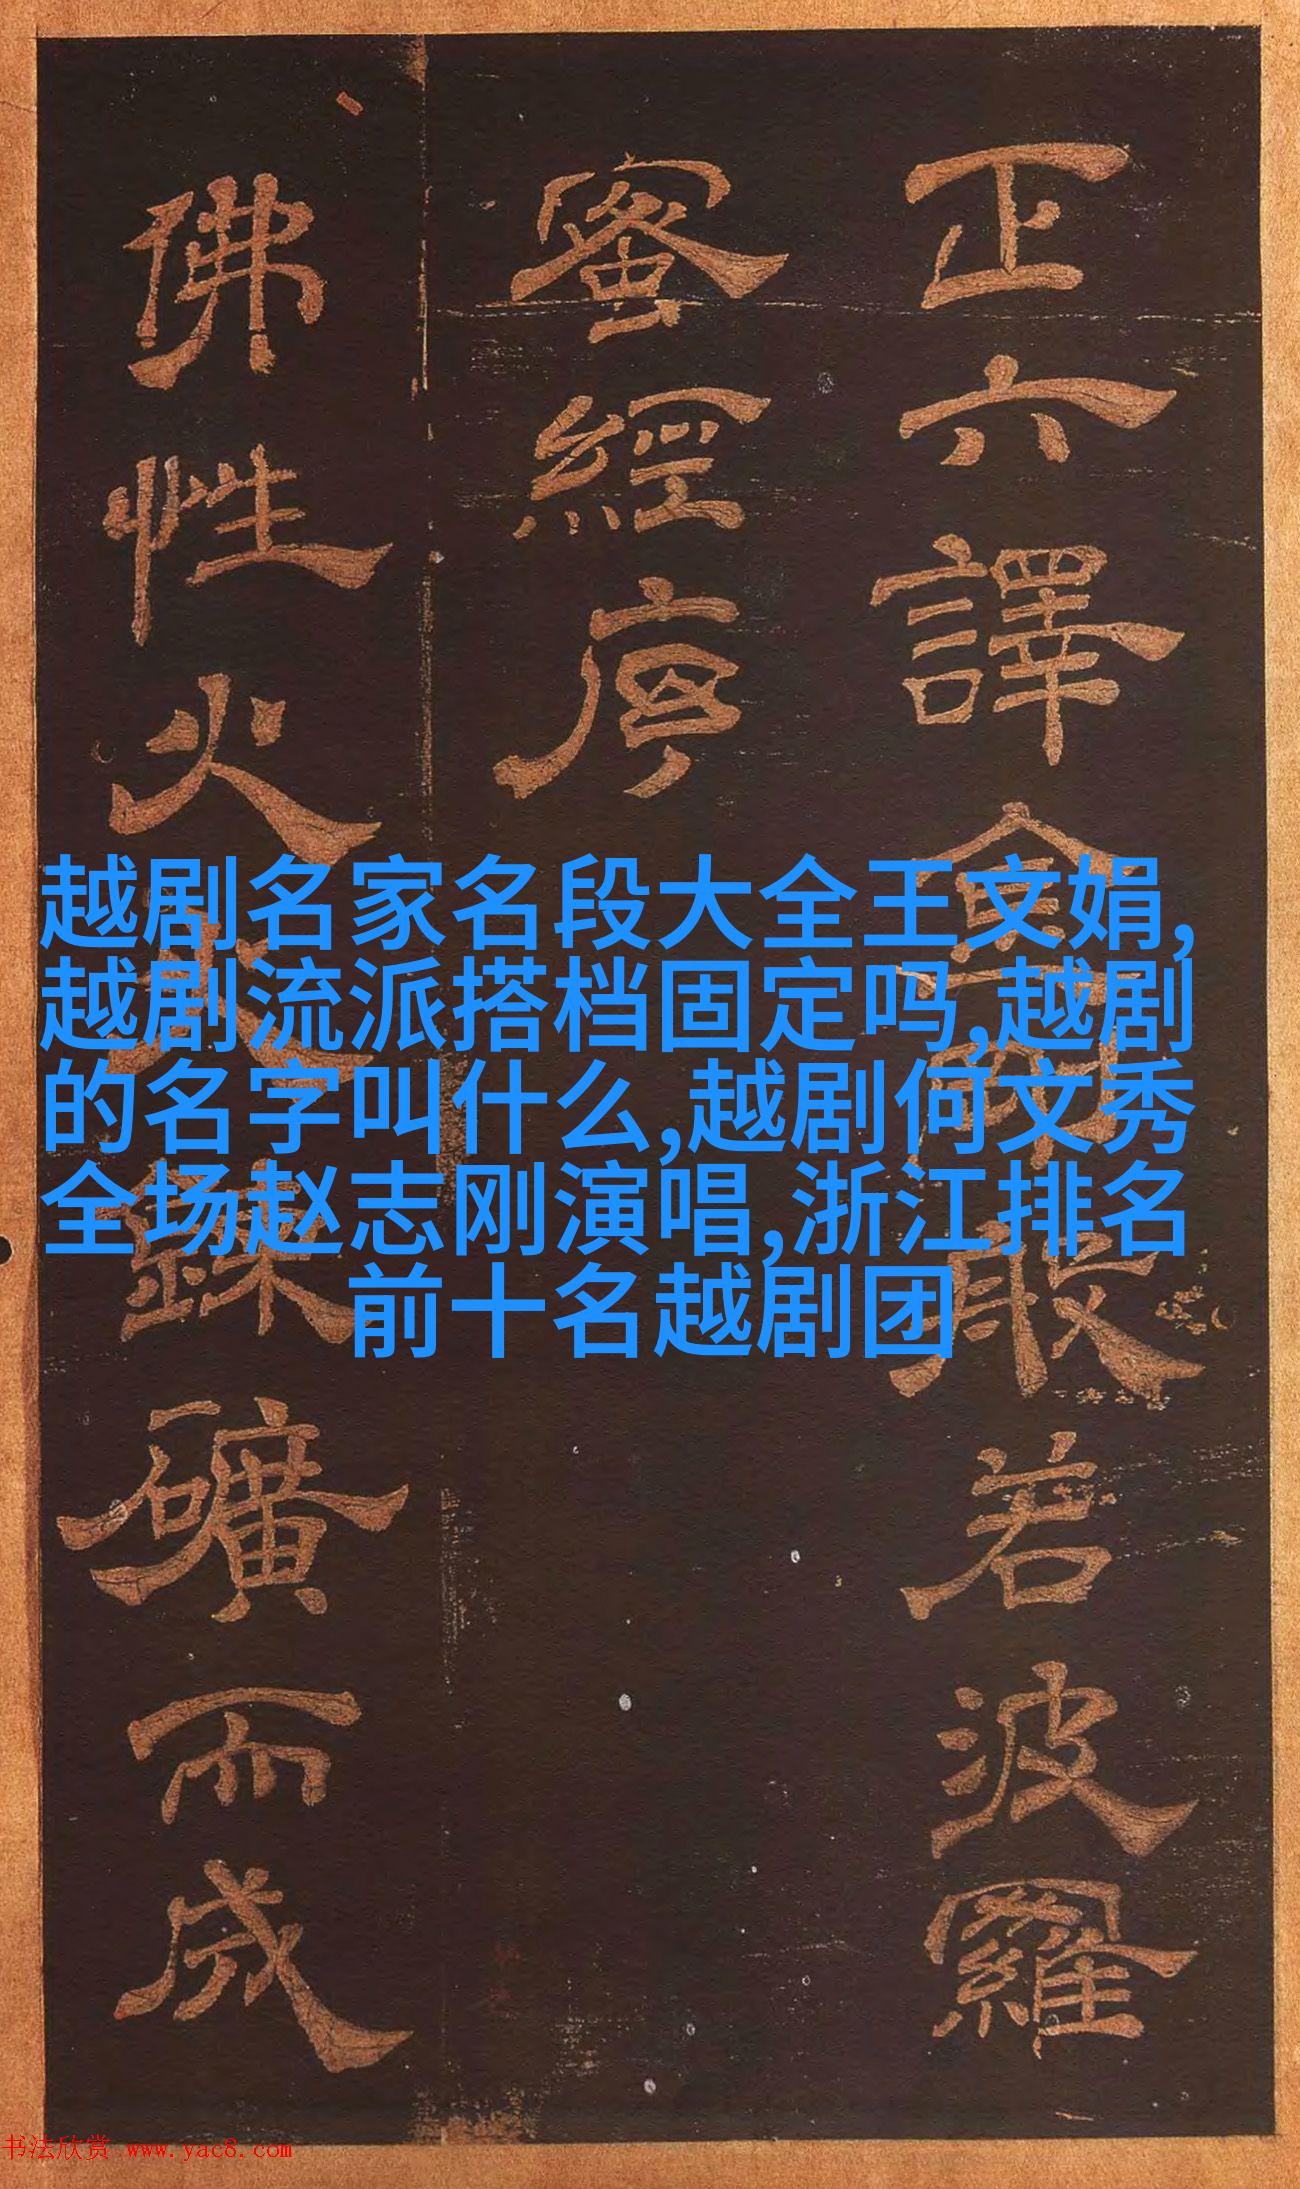 越剧名家名段大全王文娟,
越剧流派搭档固定吗,越剧
的名字叫什么,越剧何文秀
全场赵志刚演唱,浙江排名
前十名越剧团
正六譯金剛般若波羅
蜜經序
佛性火衆銖礦而成
书法欣赏 www.yac8.com